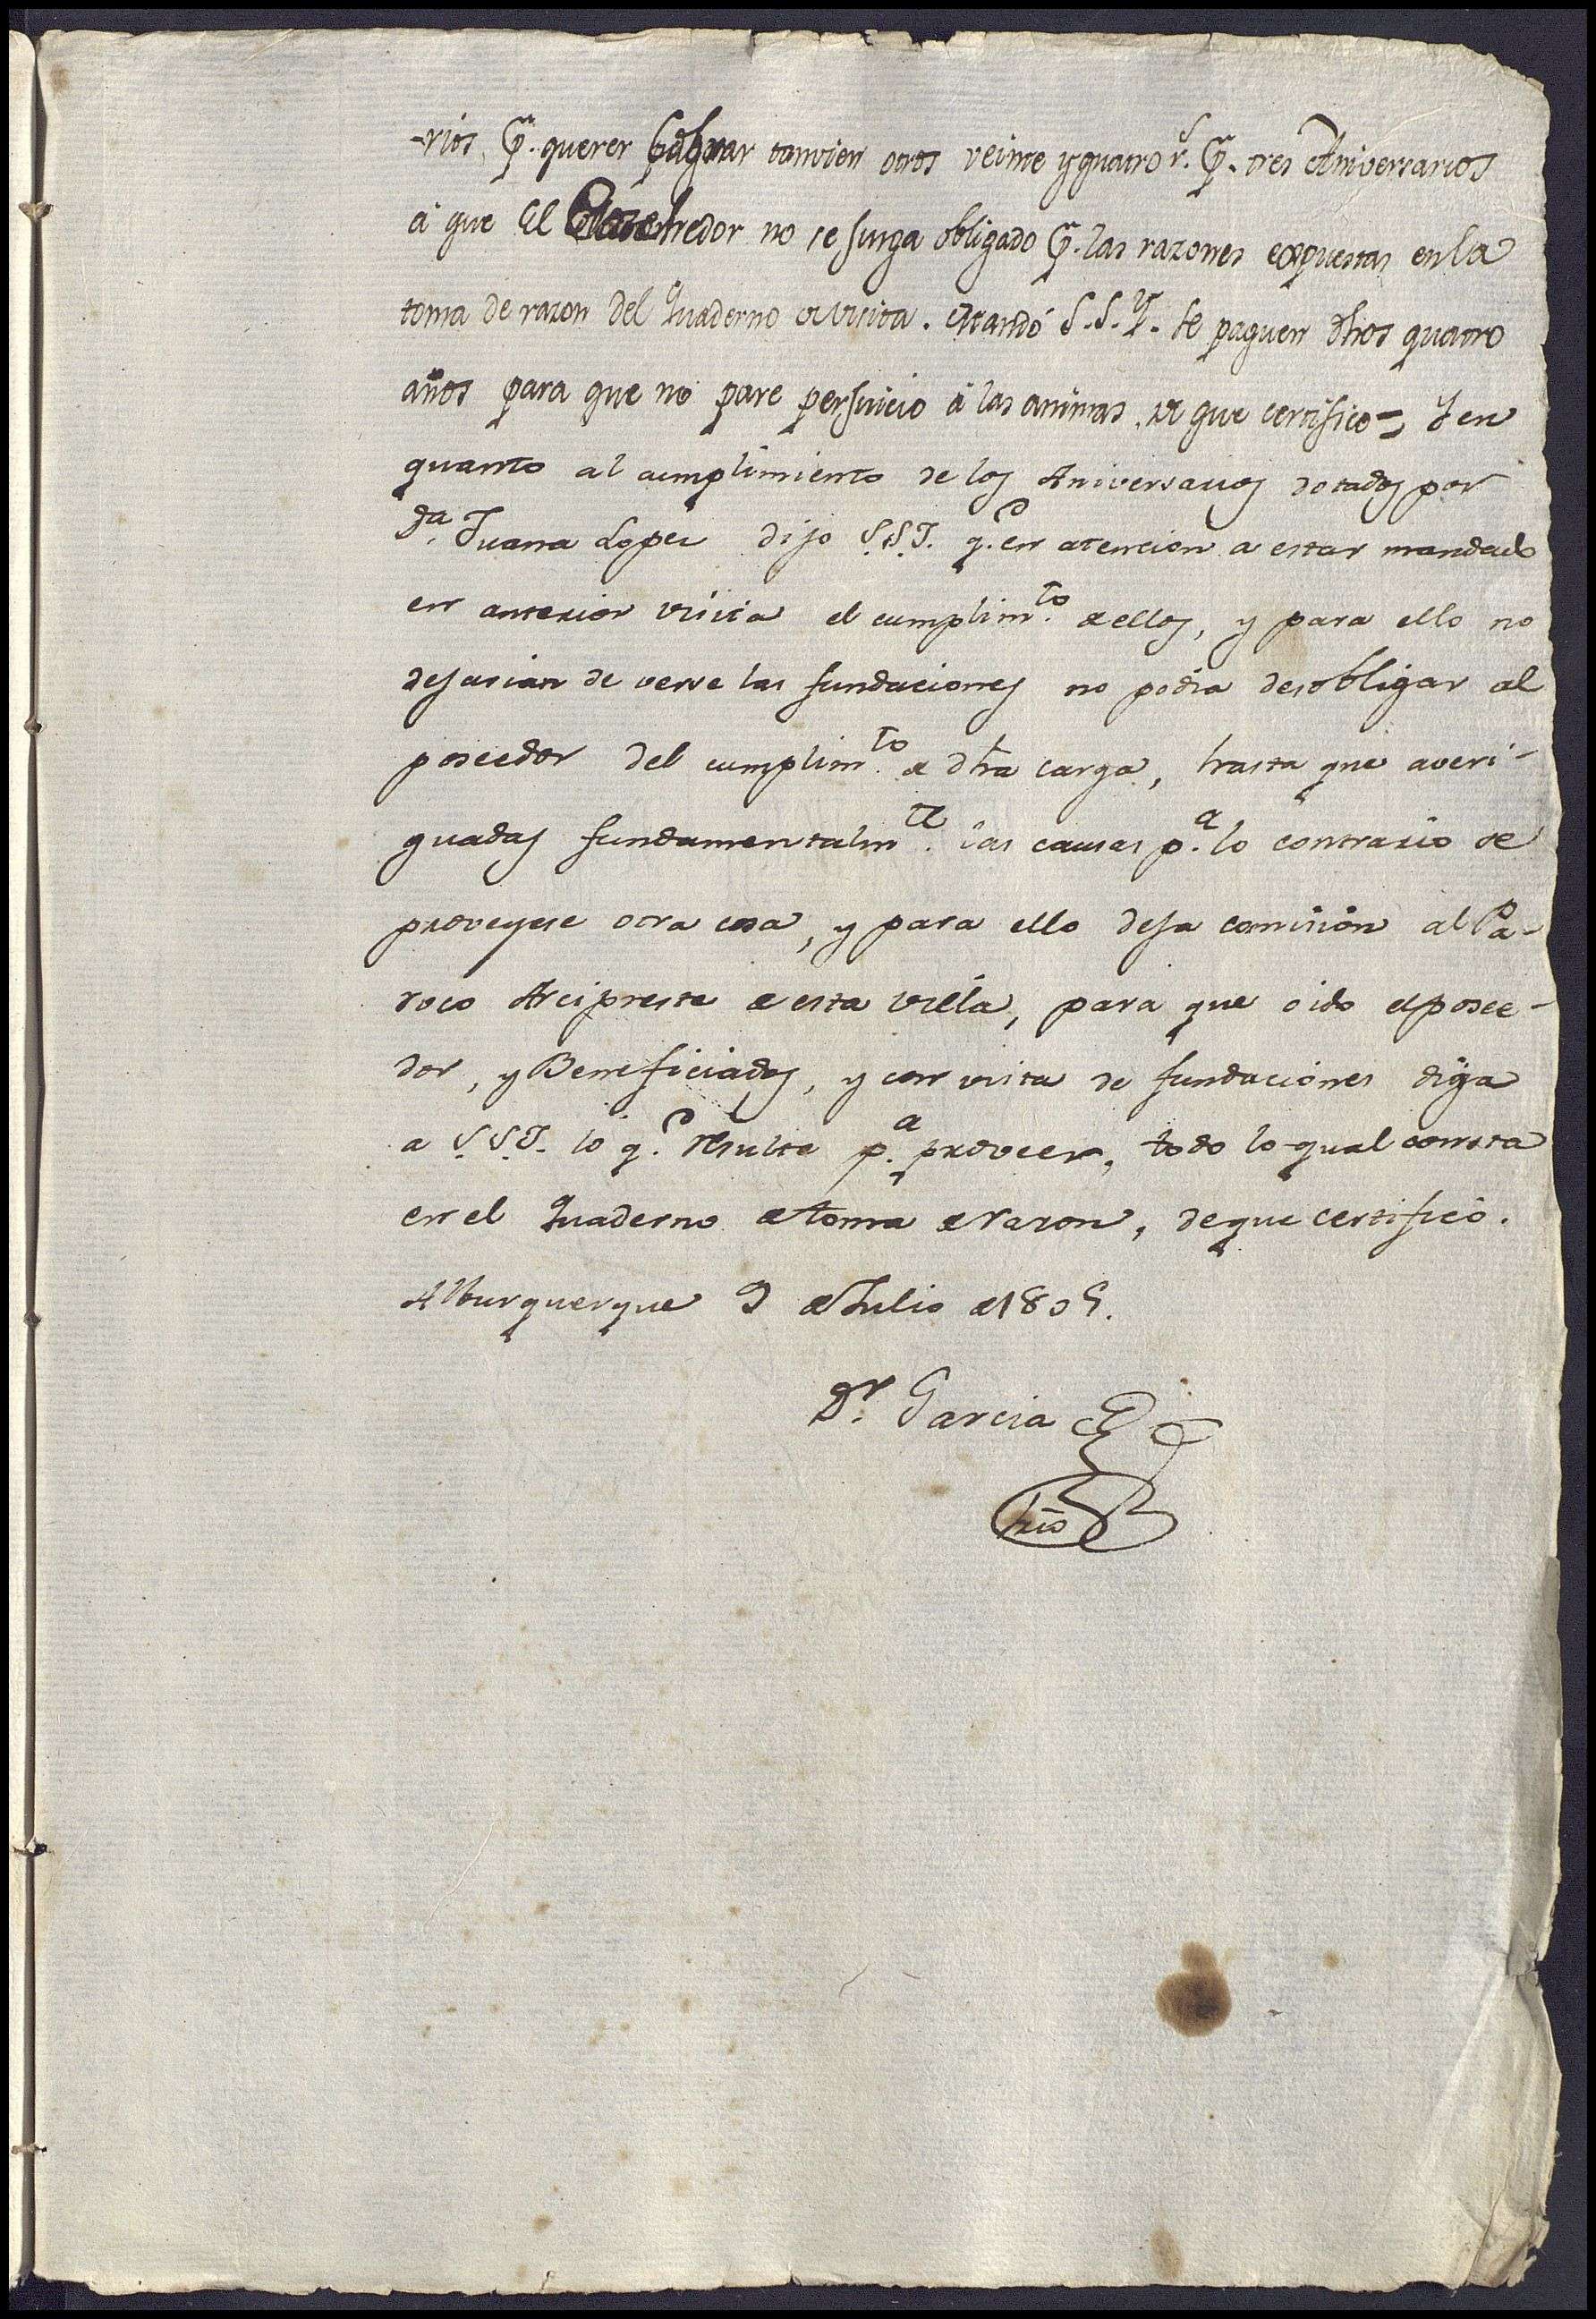 -rios, pr. querer tambien otros veinte y quatro rs. pr. tres Aniversarios
á que el no se jusga obligado pr. las razones expuestas en la
toma de razon del Quaderno de visita. Mandó S.S.Y. se paguen dhos quatro
años para que no pare perjuicio á las animas, de que certifico = Y en
quanto al cumplimiento de los Aniversarios dotados por
Da. Juana Lopez dijo S.S.I. qe. en atencion a estar mandado
en anterior visita el cumplimto. de ellos, y para ello no
dejarian de verse las fundaciones no podia desobligar al
poseedor del cumplimto. de dha carga, hasta que averi-
guadas fundamentalmte. las causas pa. lo contrario se
proveyese otra cosa, y para ello deja comision al Pa-
roco Arcipreste de esta villa, para que oido el posee-
dor, y Beneficiados, y con vista de fundaciones diga
a S.S.I. lo qe. resulte pa. proveer, todo lo qual consta
en el Quaderno de toma de razon, de que certifico.
Alburquerque 9 de Julio de 1805.
Dr. Garcia
Srio